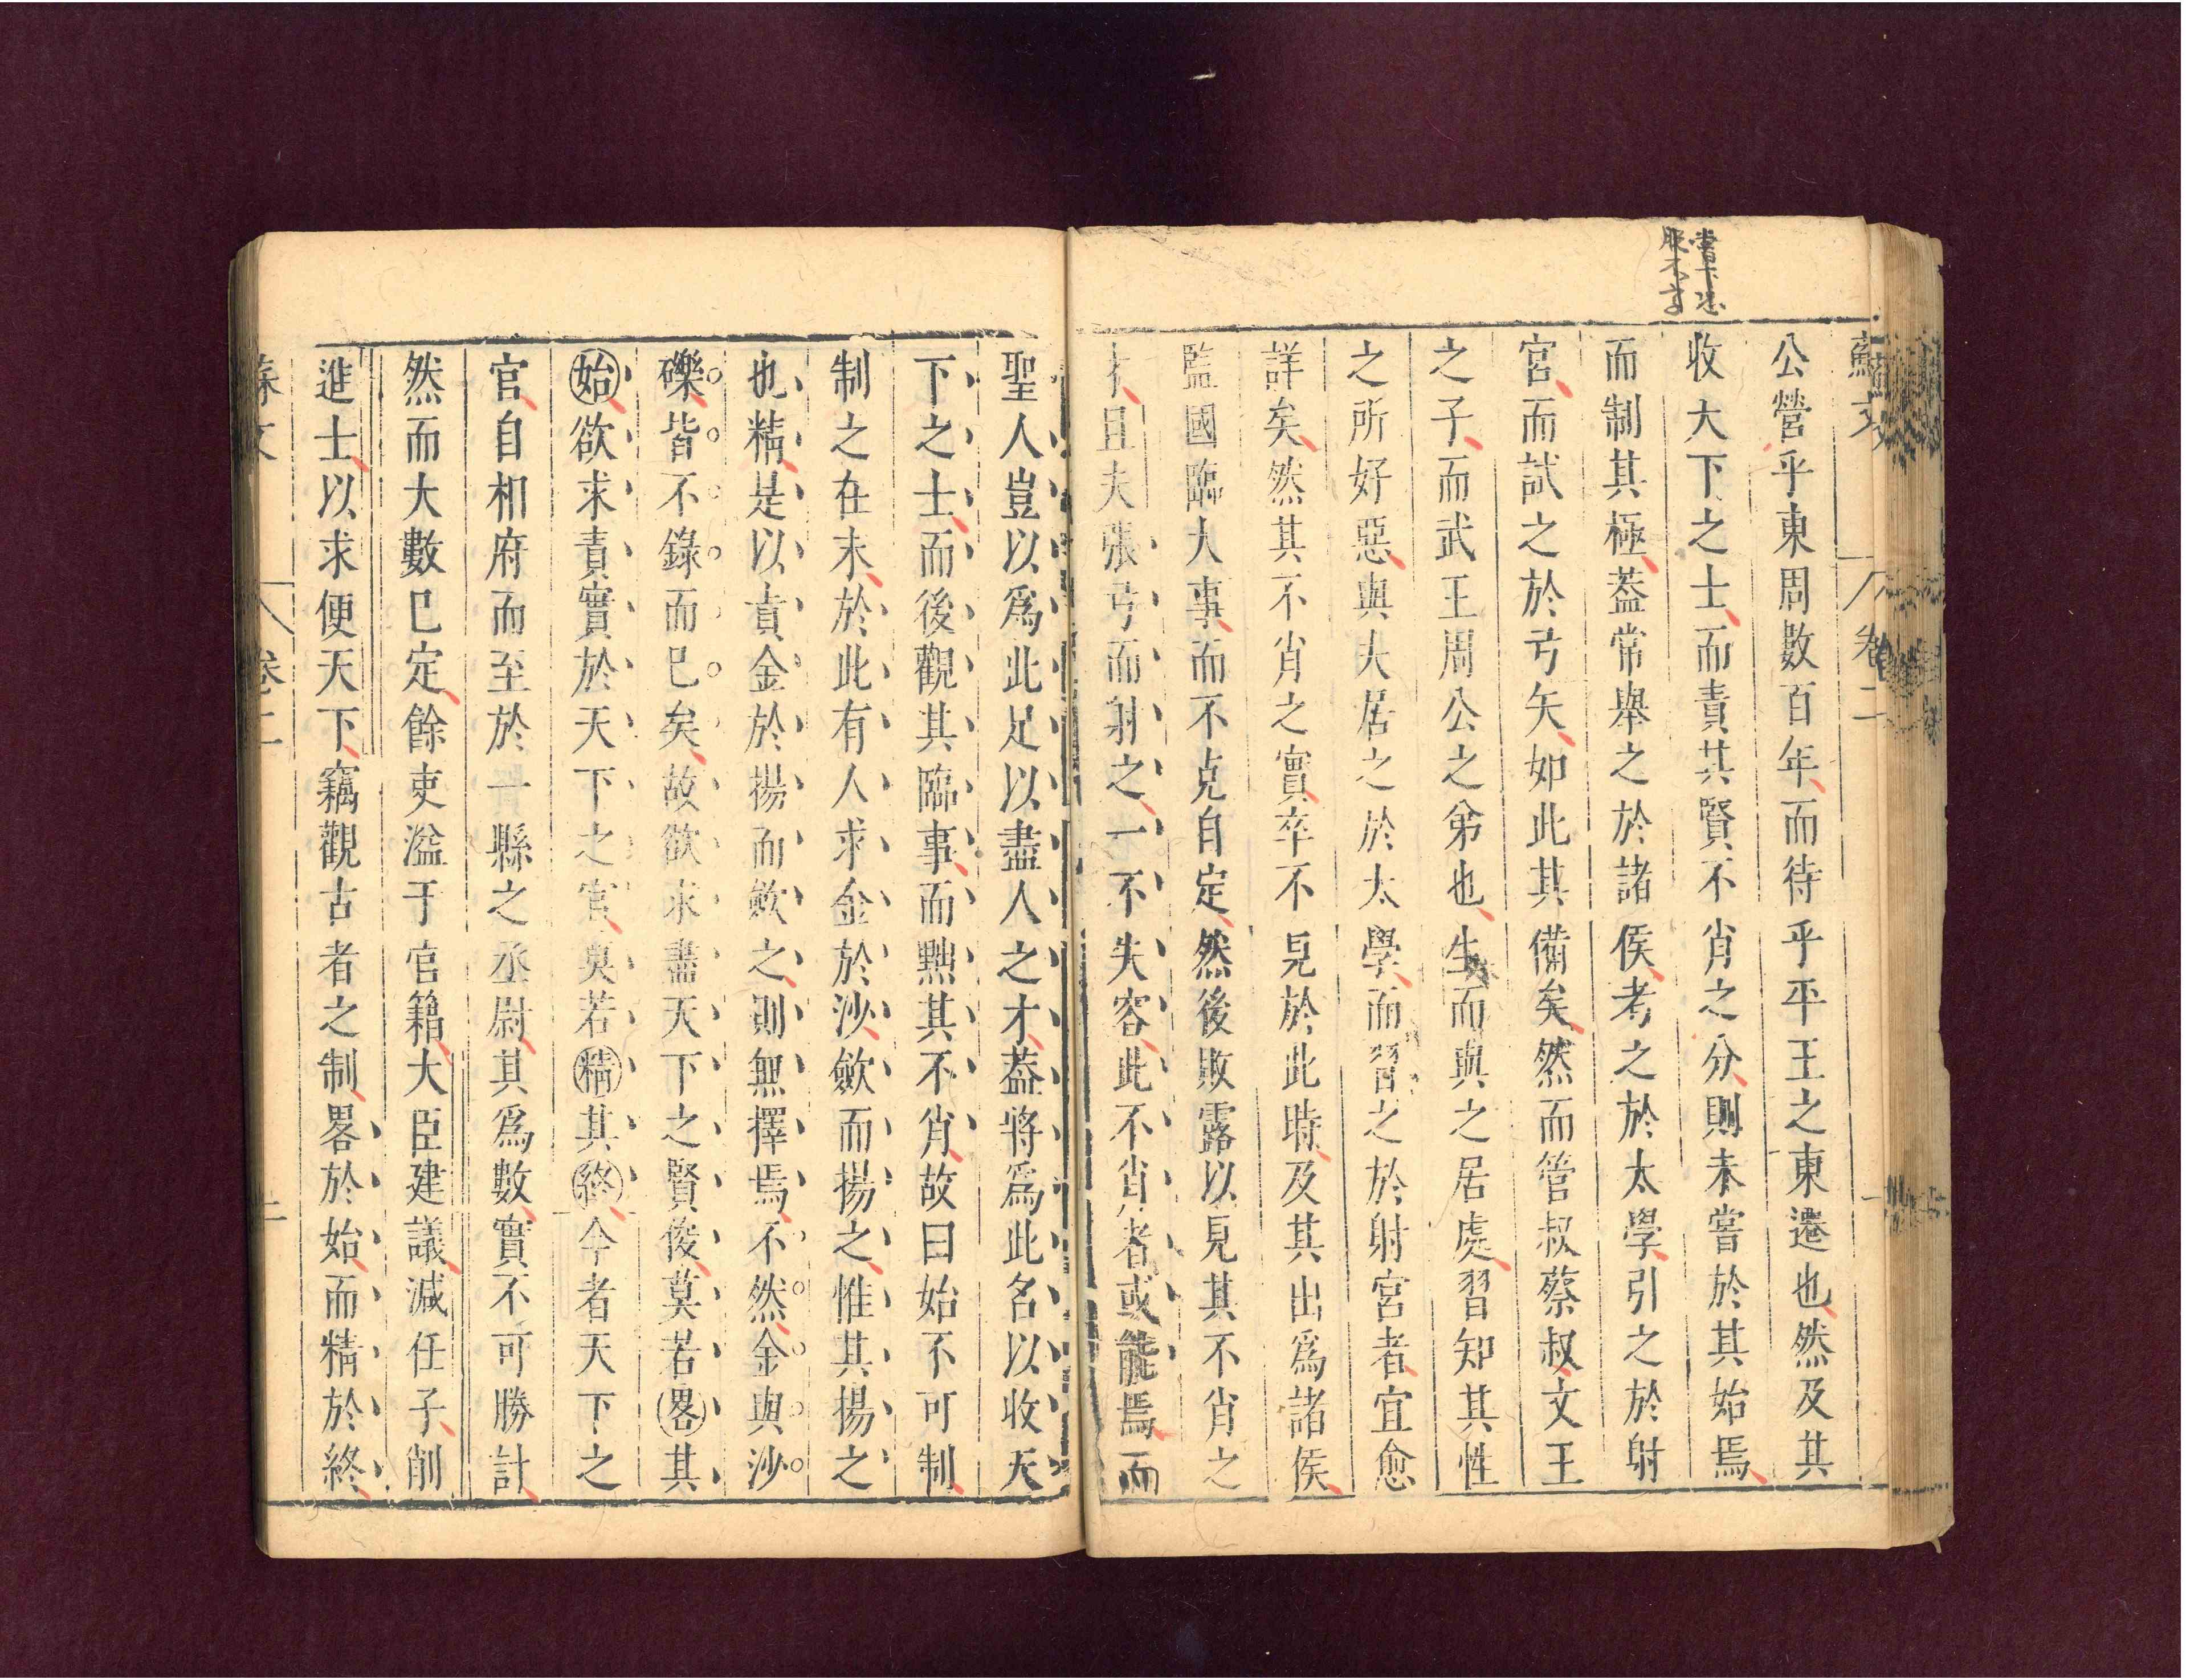 蘇文
卷二
公營乎東周數百年而待乎平王之東遷也然及其
收大下之士而責其賢不肖之分則未嘗於其始焉
而制其極葢常舉之於諸侯考之於太學引之於射
宮而試之於弓矢如此其備矣然而管叔蔡叔文王
之子而武王周公之弟也生而與之居處習知其性
之所好惡與夫居之於太學而習之於射宮者宜愈
詳矣然其不肖之實卒不見於此時及其出爲諸侯
監國臨大事而不克自定然後敗露以見其不肖之
且夫張弓而射之一不失容此不肖者或能焉而
聖人豈以爲此足以盡人之才葢將爲此名以收天
下之士而後觀其臨事而黜其不肖故曰始不可制
制之在末於此有人求金於沙斂而揚之惟其揚之
也精是以責金於揚而斂之則無擇焉不然金與沙
礫皆不錄而已矣故欲求盡天下之賢俊莫若畧其
始欲求責實於天下之官莫若精其終今者天下之
官自相府而至於一縣之丞尉其爲數實不可勝計
然而大數已定餘吏溢于官籍大臣建議減任子削
進士以求便天下竊觀古者之制畧於始而精於終
蘇文
卷二